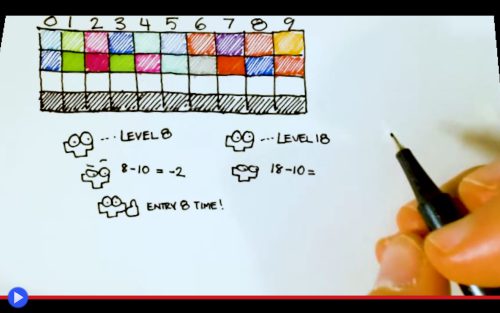 0 1 2 3 4 5 6 7 8 9
... LEVEL 8
... LEVEL 18
8-10 = -2
18-10 =
ENTRY 8 TIME!